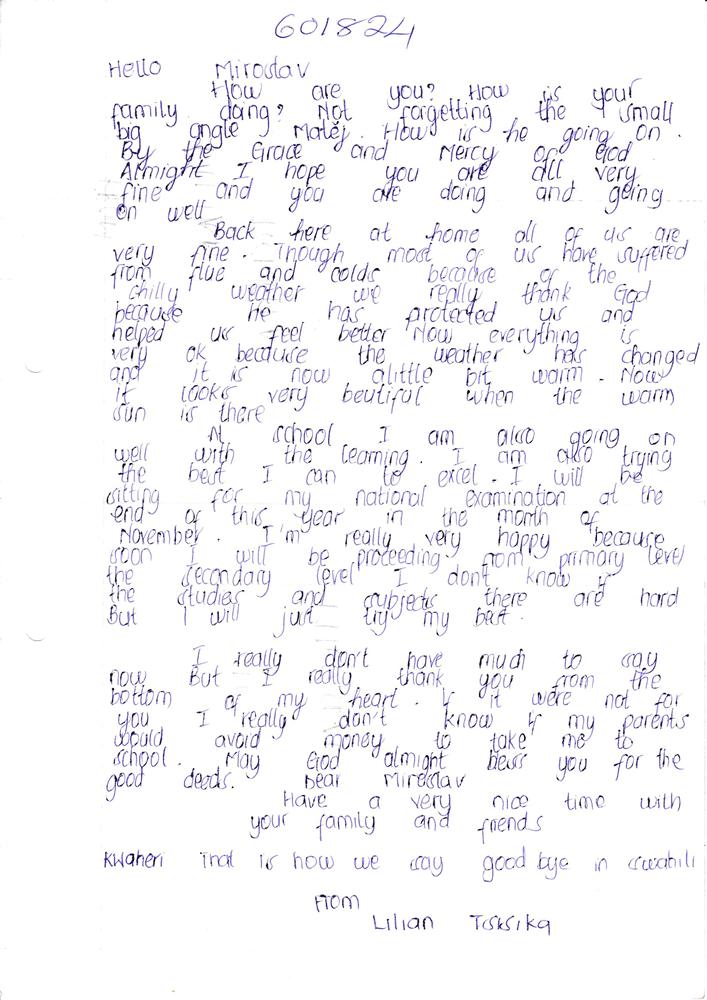 601824
Hello Miroslav
How are you? How is your
family doing? Not forgetting the small
big angle Matěj. How is he going on.
By the Grace and Mercy of God
Almight I hope you are all very
fine and you are doing and going
on well
Back here at home all of us are
very fine. Though most of us have suffered
from flue and colds because of the
chilly weather we really thank God
because he has protected us and
helped us feel better Now everything is
very ok because the weather has changed
and it is now alittle bit warm. Now
it looks very beutiful when the warm
sun is there
At school I am also going on
well with the learning. I am also trying
the best I can to excel. I will be
sitting for my national examination at the
end of this year in the month of
November. I'm really very happy because
soon I will be proceeding from primary level
the secondary level I don't know if
the studies and subjects there are hard
But I will just try my best.
I really don't have much to say
now But I really thank you from the
bottom of my heart. If it were not for
you I really don't know if my parents
would avoid money to take me to
school. May God almight bless you for the
good deeds. Dear Miroslav
Have a very nice time with
your family and friends
Kwaheri That is how we say good bye in swahili
From
Lilian